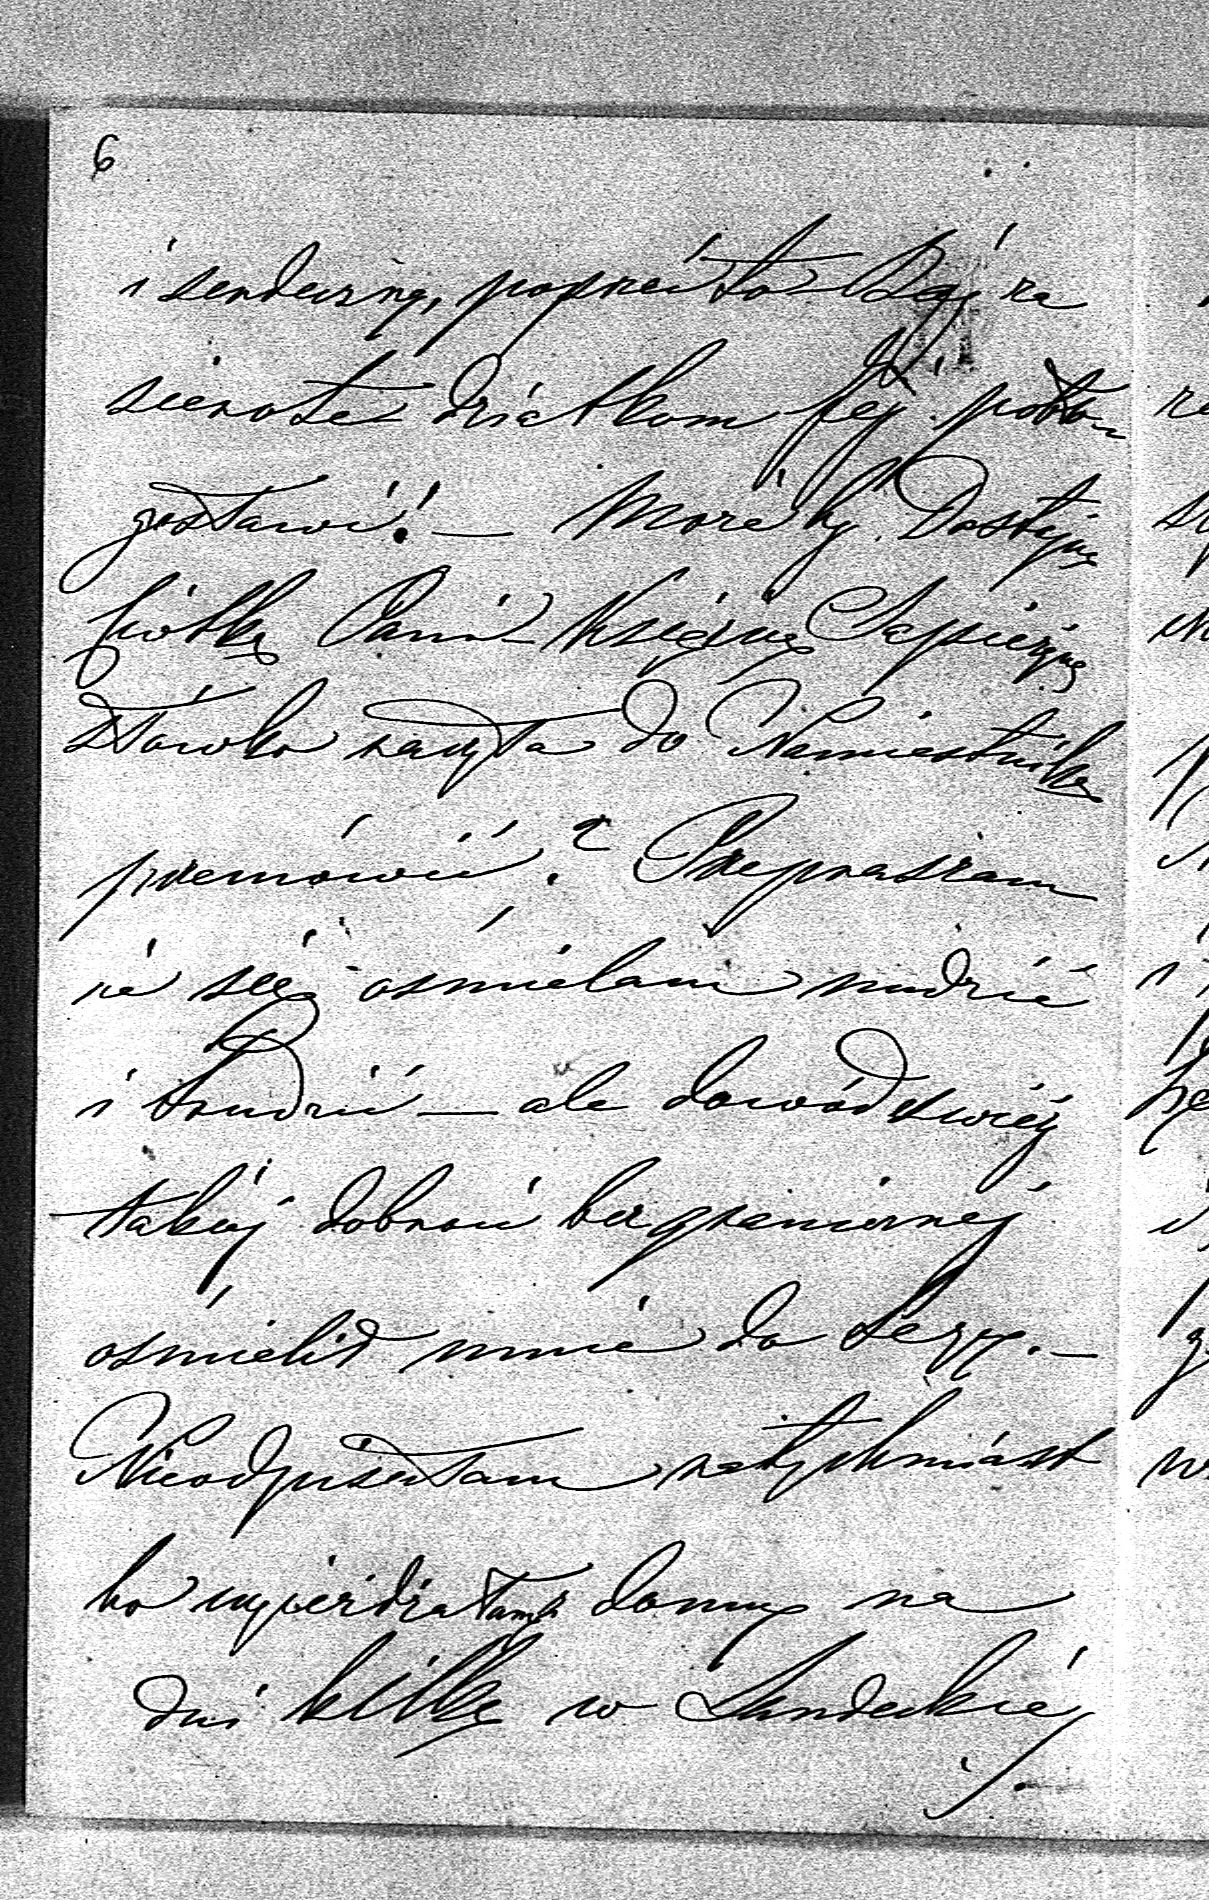 6
i serdeczną, poprzeć to Bóg za
sierotę dziatkom Jéj
gosławi! — Może by Dostojną
Ciotkę Panią Księżnę Sapieżynę
słówko raczyła do Namiestnika
przemówić? Przepraszam
że się ośmielam nudzić
i trudzić — ale dowód swiéj
takiéj dobroci bezgranicznéj
ośmielił mnie do tego. —
Nieodpisałam natychmiást
bo wyjeżdżałam z domu na
dni kilka w Sandeckie